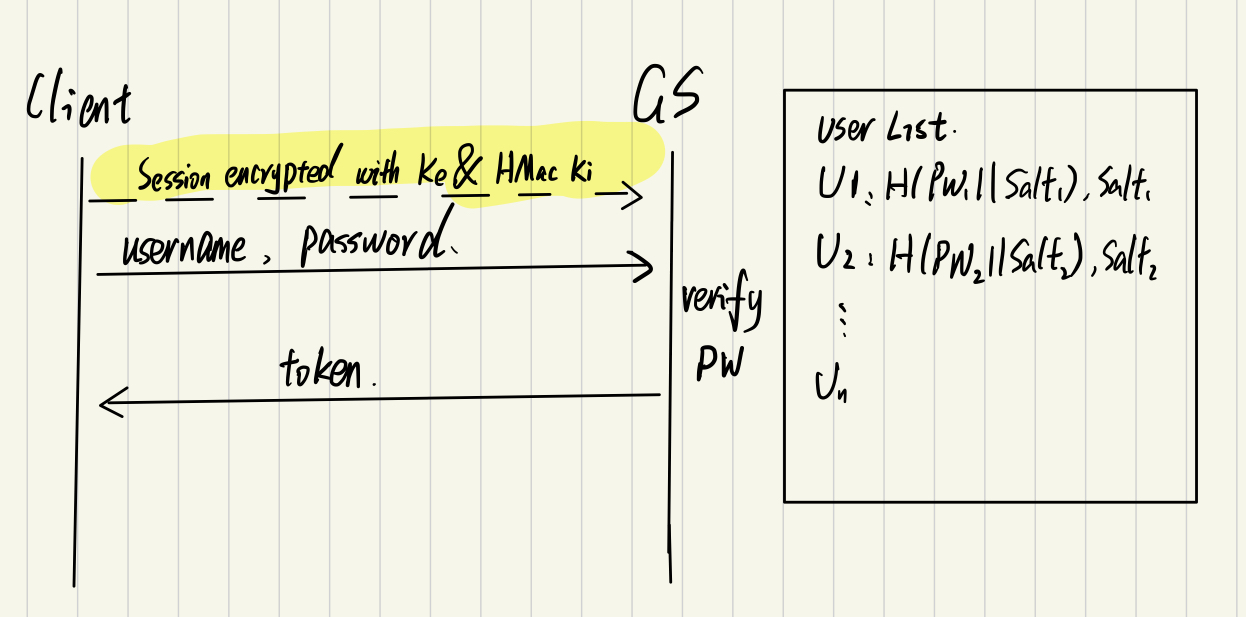 Client
GS
Session encrypted with Ke & HMac Ki
username, password.
verify
PW
token.
User List.
U1: H(PW1||Salt1), Salt1
U2: H(PW2||Salt2), Salt2
⋮
Un